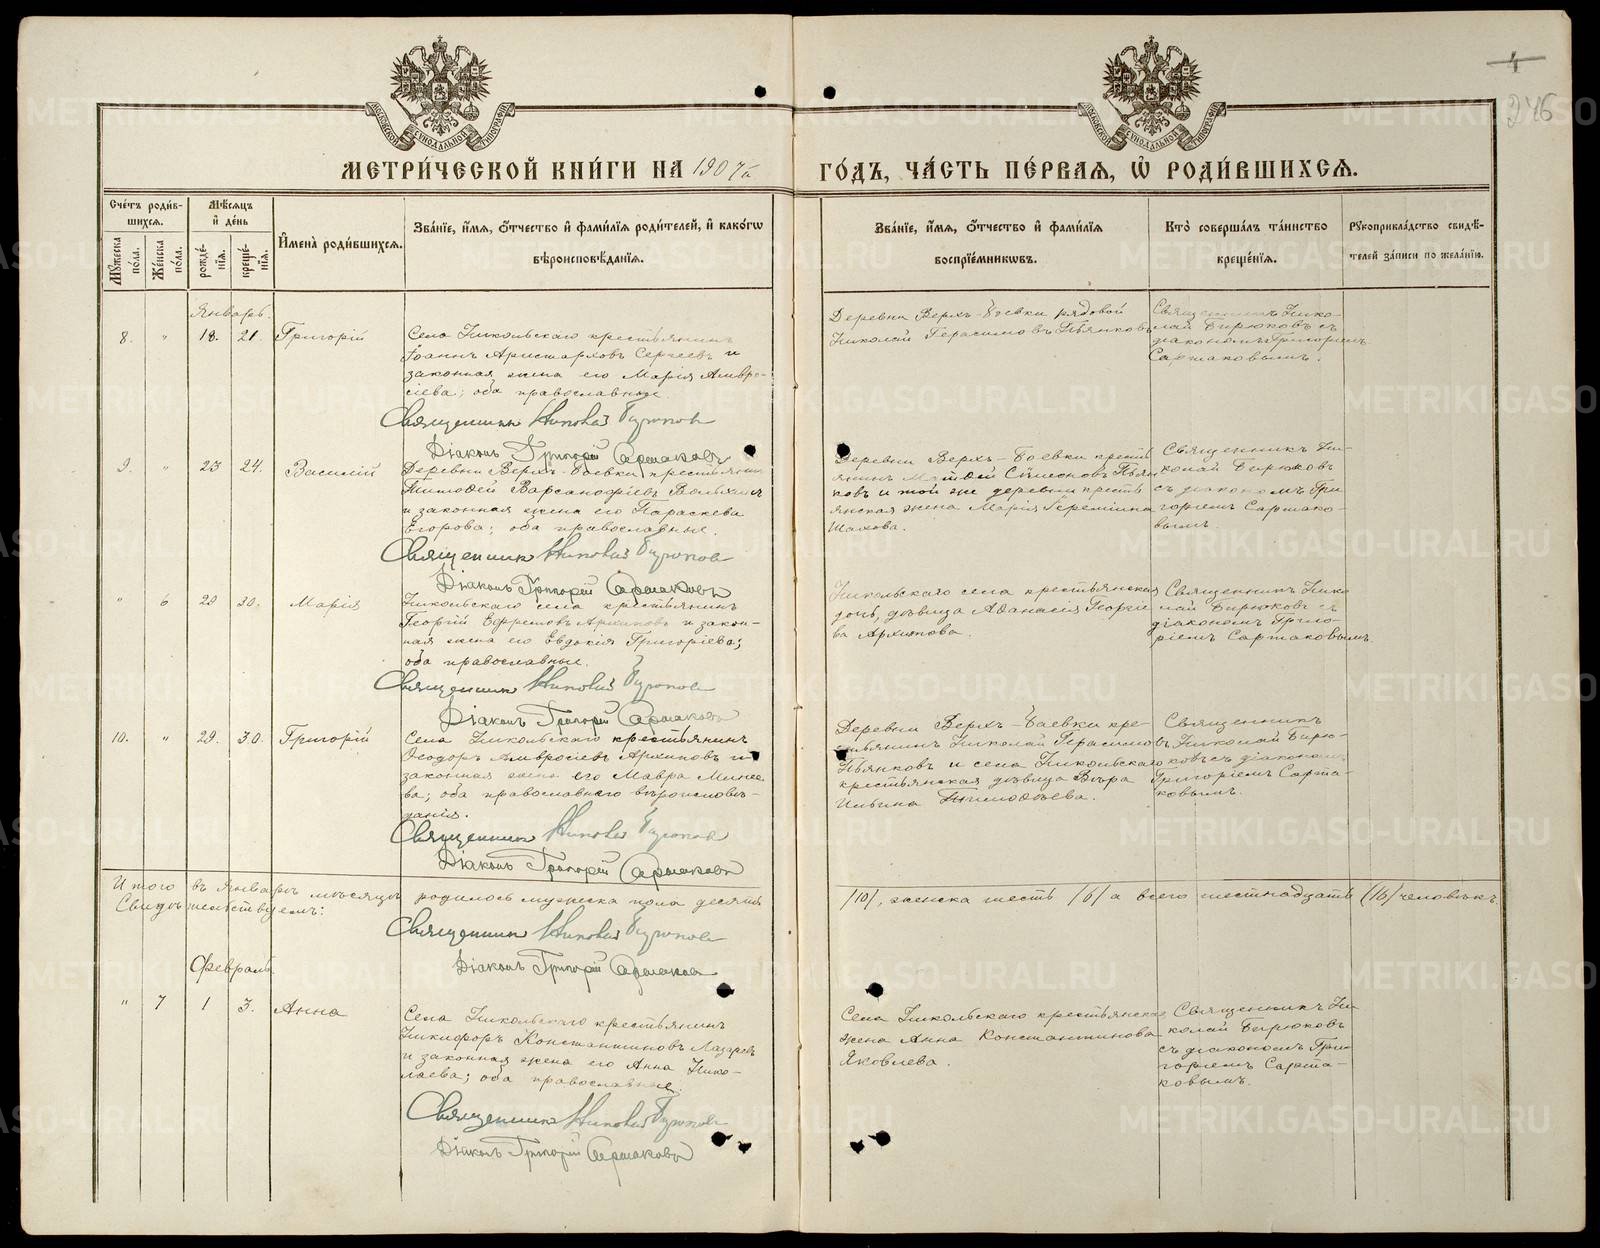 4
246
МОСКОВСКОЙ СѴНОДАЛЬНОЙ ТИПОГРАФІИ
МОСКОВСКОЙ СѴНОДАЛЬНОЙ ТИПОГРАФІИ
МЕТРИ́ЧЕСКОЙ КНИ́ГИ НА 1907й
ГО́ДЪ, ЧА́СТЬ ПЕ́РВАѦ, Ѽ РОДИ́ВШИХСѦ.
Сче́тъ роди́в-
шихсѧ.
Мꙋ́жеска
по́ла.
Же́нска
по́ла.
Мѣ́сѧцъ
и҆ де́нь
рожде́-
нїѧ.
креще́-
нїѧ.
И҆мена̀ роди́вшихсѧ.
Зва́нїе, и҆́мѧ, ѻ҆́тчество и҆ фамилїѧ роди́телей, и҆ како́гѡ
вѣроисповѣ́данїѧ.
Зва́нїе, и҆́мѧ, ѻ҆́тчество и҆ фами́лїѧ
воспрїе́мникѡвъ.
Кто̀ соверша́лъ та́инство
креще́нїѧ.
Рꙋкоприкла́дство свидѣ́-
телей за́писи по жела́нїю.
Январь.
8. " 18. 21. Григорій
Село Никольскаго крестьянинъ
Іоаннъ Аристарховъ Сергеевъ и
законная жена его Марія Амвро-
сіева; оба православные
Священникъ Николай Бирюковъ
Діаконъ Григорій Сартаковъ
Деревни Верхъ-Боевки рядовой
Николай Герасимовъ Пьянковъ
Священникъ Нико-
лай Бирюковъ съ
діакономъ Григоріемъ
Сартаковымъ.
9. " 23 24. Василій
Деревни Верхъ-Боевки крестьянинъ
Тимофей Варсанофіевъ
и законная жена его Параскева
Егорова; оба православные.
Священникъ Николай Бирюковъ
Діаконъ Григорій Сартаковъ
Деревни Верхъ-Боевки кресть
янинъ Матфей Симеоновъ Пьян
ковъ и той же деревни кресть
янская жена Марія Іереміина
Шахова.
Священникъ Ни-
колай Бирюковъ
съ діакономъ Гри-
горіемъ Сартако-
вымъ
" 6 29 30. Марія
Никольскаго села крестьянинъ
Георгій Ефремовъ Архиповъ и закон-
ная жена его Евдокія Григоріева;
оба православные.
Священникъ Николай Бирюковъ
Діаконъ Григорій Сартаковъ
Никольскаго села крестьянская
дочь, дѣвица Афанасія Георгіе
ва Архипова.
Священникъ Нико
лай Бирюковъ съ
діакономъ Григо-
ріемъ Сартаковымъ.
10. " 29. 30. Григорій
Села Никольскаго крестьянинъ
Ѳеодоръ Амвросіевъ Архиповъ и
законная жена его Мавра Минее
ва; оба православнаго вѣроисповѣ-
данія.
Священникъ Николай Бирюковъ
Діаконъ Григорій Сартаковъ
Деревни Верхъ-Баевки кре-
стьянинъ Николай Герасимовъ
Пьянковъ и села Никольскаго
крестьянская дѣвица Вѣра
Ильина Тимофеева.
Священникъ
Николай Бирю-
ковъ съ діакономъ
Григоріемъ Сарта-
ковымъ.
Итого въ Январѣ мѣсяцѣ родилось мужеска пола десять /10/, женска шесть /6/ а всего шестнадцать (16) человѣкъ.
Свидѣтельствуемъ:
Священникъ Николай Бирюковъ
Діаконъ Григорій Сартаковъ
Февраль
" 7 1 3. Анна
Села Никольскаго крестьянинъ
Никифоръ Константиновъ Лазаревъ
и законная жена его Анна Нико-
лаева; оба православные.
Священникъ Николай Бирюковъ
Діаконъ Григорій Сартаковъ
Села Никольскаго крестьянская
жена Анна Константинова
Яковлева.
Священникъ Ни-
колай Бирюковъ
съ діакономъ Гри-
горіемъ Сарта-
ковымъ.
METRIKI.GASO-URAL.RU